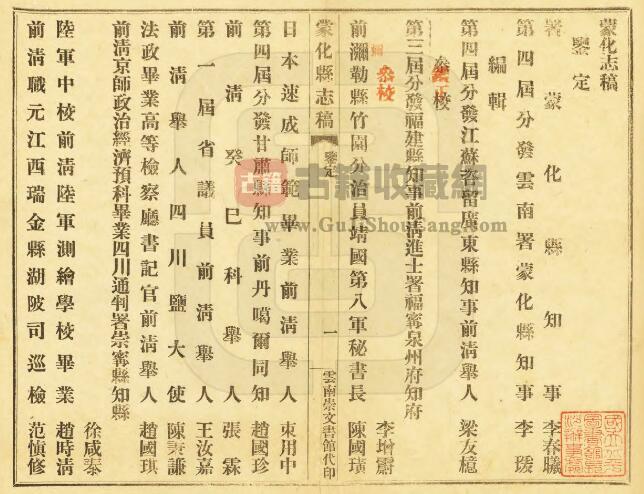 蒙化志稿
鑒定
署蒙化縣知事李春曦
第四屆分發雲南署蒙化縣知事李瑗
編輯
第四屆分發江蘇咨留廣東縣知事前清舉人梁友檍
參校
第三屆分發福建縣知事前清進士署福寧泉州府知府李增霨
參校
前瀰勒縣竹園分治員靖國第八軍秘書長陳國璜
蒙化縣志稿
鑒定
一
雲南崇文書館代印
日本速成師範畢業前清舉人束用中
第四屆分發甘肅縣知事前丹噶爾同知趙國珍
前清癸巳科舉人張霖
第一屆省議員前清舉人王汝嘉
前清舉人四川鹽大使陳秉謙
法政畢業高等檢察廳書記官前清舉人趙國琪
前清京師政治經濟預科畢業四川通判署崇寧縣知縣徐咸泰
陸軍中校前清陸軍測繪學校畢業趙時清
前清職元江西瑞金縣湖陂司巡檢范慎修
古籍
古籍收藏網
www.GuJiShouCang.com